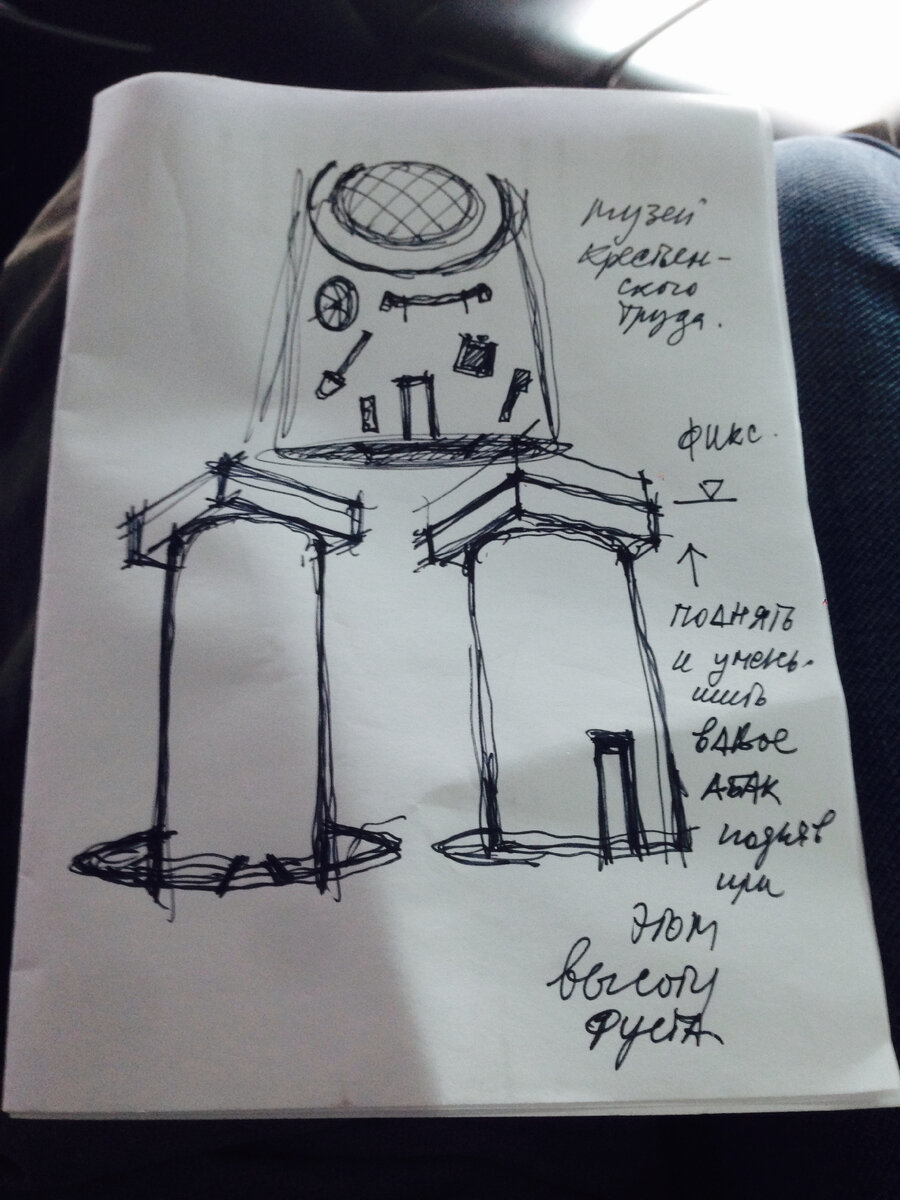 музей
крестьян-
ского
труда.
фикс.
поднять
и умень-
шить
вдвое
абак
подняв
при
этом
высоту
фуста